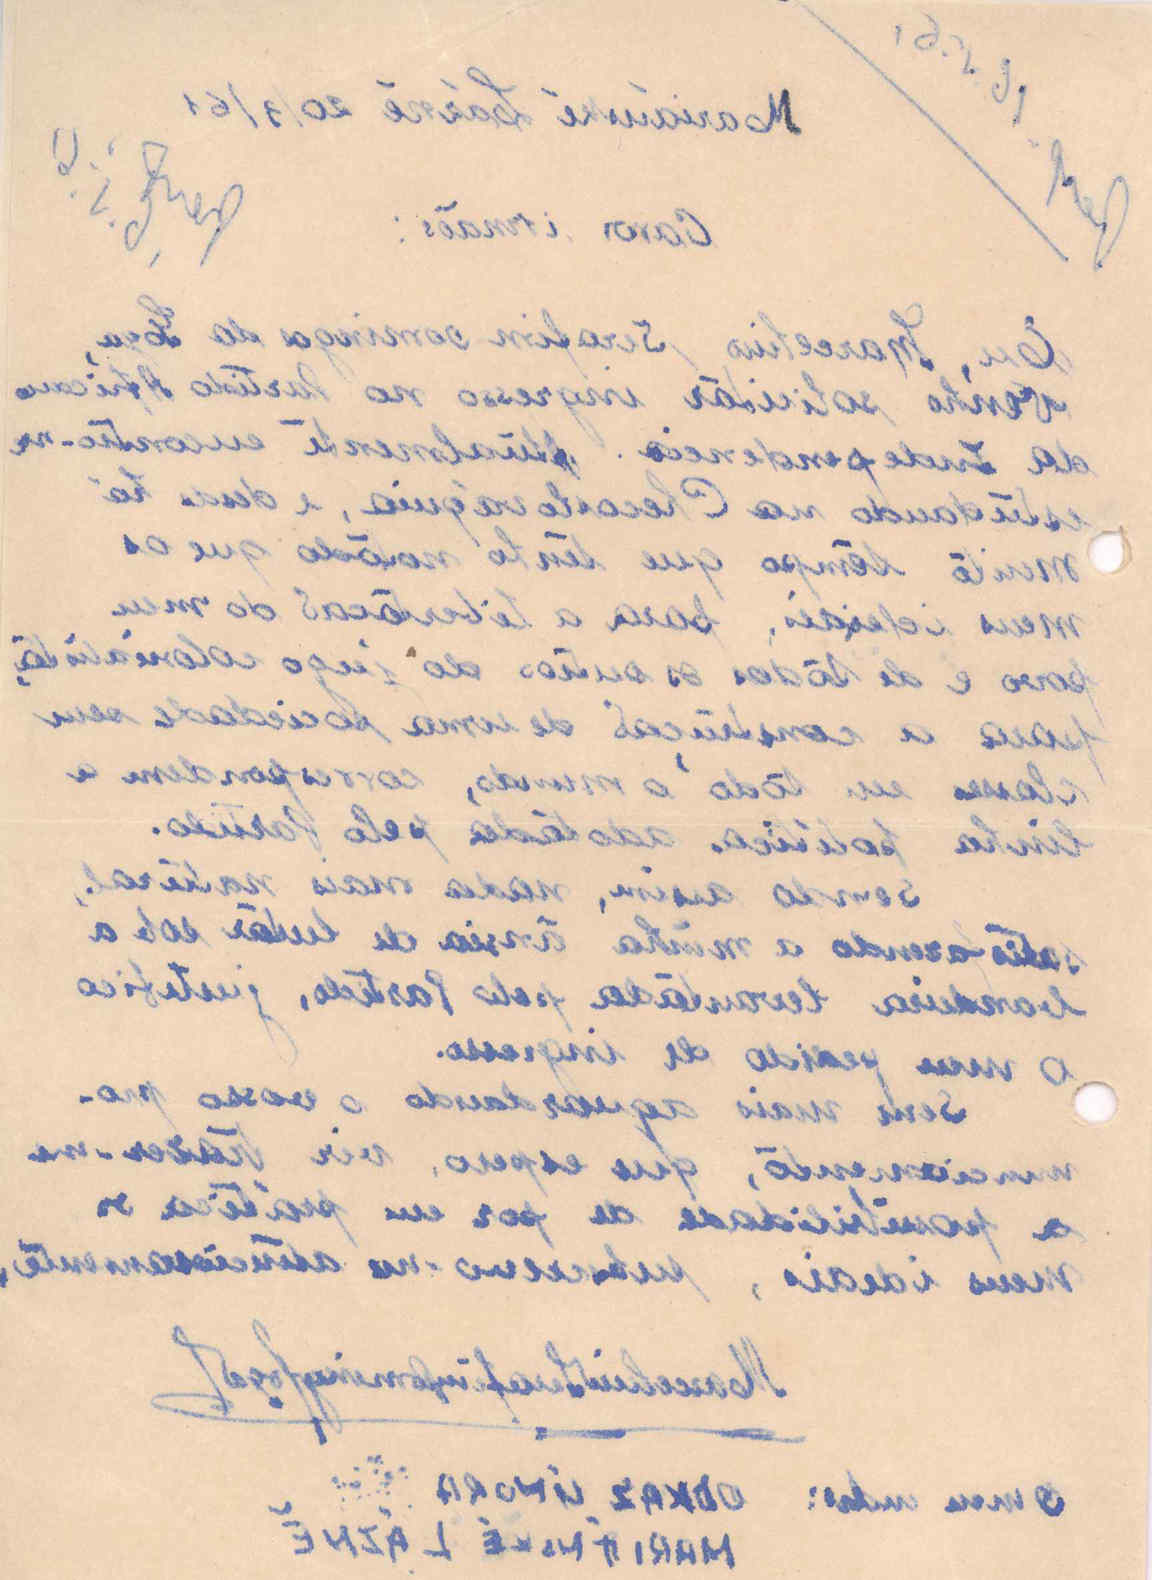 19.7.61
Marianské Lázně 20/7/61
Caros irmãos:
Eu, Marcelino Serafim Domingos da
venho solicitár ingresso no Partido Africano
da Independencia. Atualmente encontro-me
estudando na Checoslováquia, e desde há
muito tempo que tenho notado que os
meus ideais, para a libertação do meu
povo e de todos os outros do jugo colonialista,
para a construção de uma sociedade sem
classes em todo o mundo, correspondem a
linha politica adotada pelo Partido.
Sendo assim, nada mais natural,
satisfazendo a minha ânsia de lutár sob a
bandeira levantada pelo Partido, justifico
o meu pedido de ingresso.
Sem mais aguardando o vosso pro-
nunciamento, que espero, vir trazer-me
a possibilidade de por em prática os
meus ideais, subscrevo-me atenciosamente,
O meu endº: ODKAZ ÚNORA
MARIÁNSKÉ LÁZNĚ